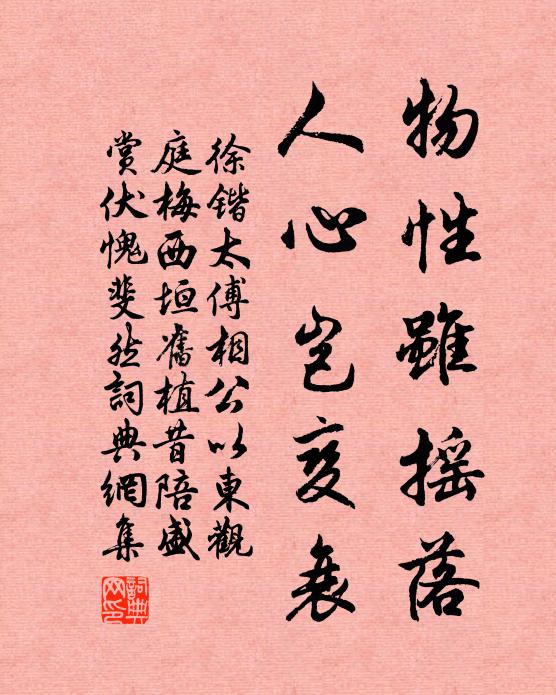 物性雖摇落
人心豈変衰
徐鍇太傅相公以東觀
庭梅西垣舊植昔陪盛
賞伏愧斐然詞典網集
詞典網印